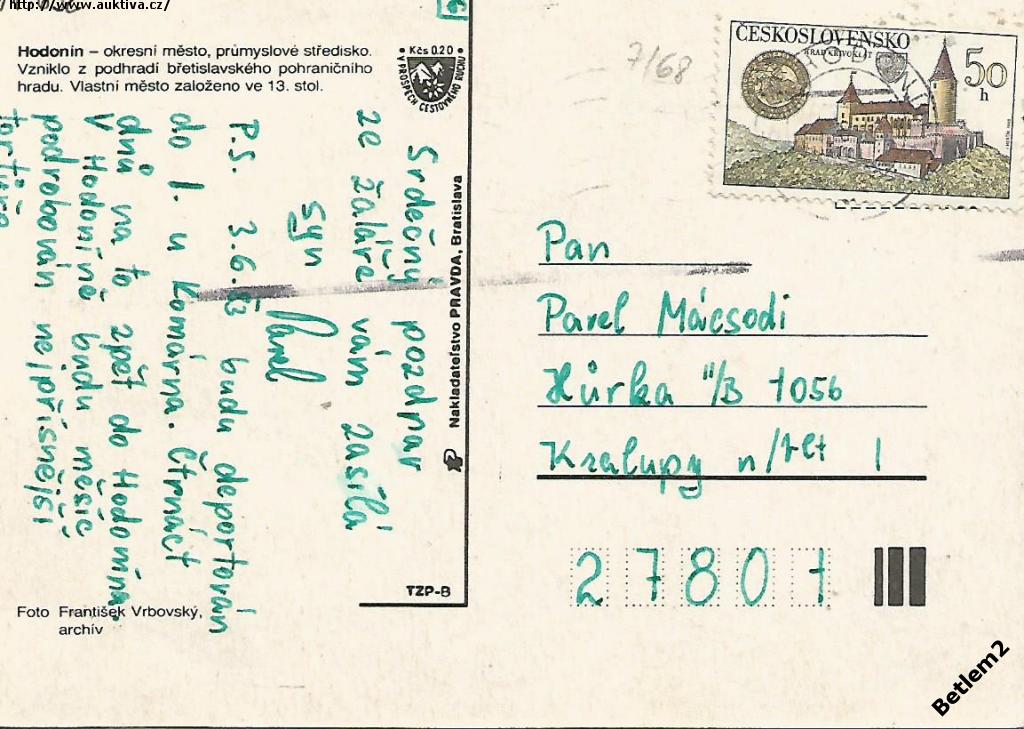 http://www.auktiva.cz/
Hodonín – okresní město, průmyslové středisko.
Vzniklo z podhradí břetislavského pohraničního
hradu. Vlastní město založeno ve 13. stol.
• Kčs 0.20 •
V PROSPĚCH CESTOVNÉHO RUCHU
Srdečný pozdrav
ze žaláře vám zasílá
syn
Pavel
P.S. 3.6. budu deportován
do 1. u Komárna. Čtrnáct
dnů na to zpět do Hodonína.
V Hodoníně budu měsíc
podrobován nejpřísnější
tortuře
Nakladateľstvo PRAVDA, Bratislava
TZP-B
Foto František Vrbovský,
archív
7/68
ČESKOSLOVENSKO
HRAD KŘIVOKLÁT
50
h
Pan
Pavel Mácsodi
Hůrka II/B 1056
Kralupy n/Vlt 1
27801
Betlem2